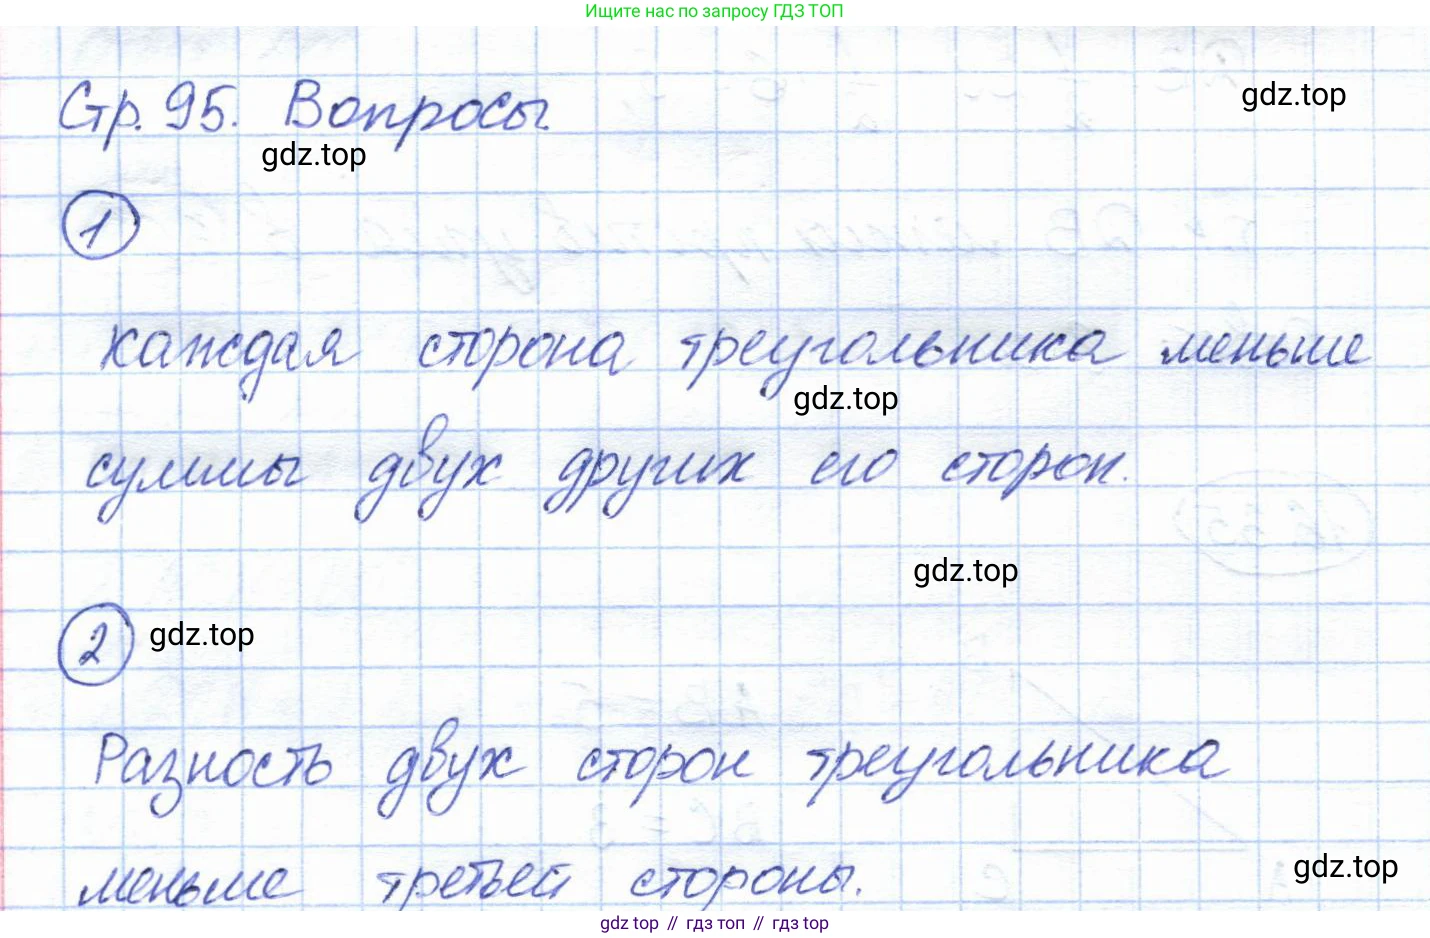 Ищите нас по запросу ГДЗ ТОП
Стр. 95. Вопросы.
gdz.top
gdz.top
1
каждая сторона треугольника меньше
gdz.top
суммы двух других его сторон.
gdz.top
2
gdz.top
Разность двух сторон треугольника
меньше третьей стороны.
gdz.top
gdz top // гдз топ // гдз top